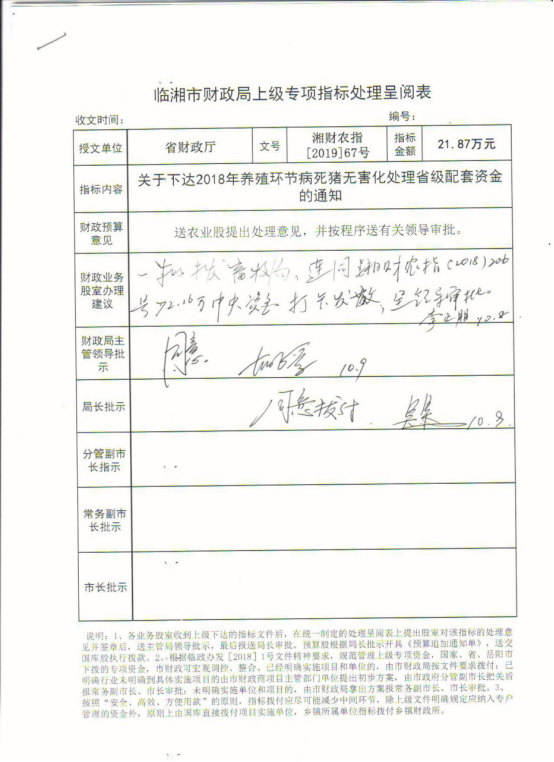 临湘市财政局上级专项指标处理呈阅表
收文时间： 编号：
授文单位 省财政厅 文号 湘财农指[2019]67号 指标金额 21.87万元
指标内容 关于下达2018年养殖环节病死猪无害化处理省级配套资金的通知
财政预算意见 送农业股提出处理意见，并按程序送有关领导审批。
财政业务股室办理建议
拨畜牧局，连同湘财农指(2018)206
号72.16万中央资金打卡发散，呈领导审批
10.8
财政局主管领导批示 同意 10.9
局长批示 同意拨付 10.9.
分管副市长指示
常务副市长批示
市长批示
说明：1、各业务股室收到上级下达的指标文件后，在统一制定的处理呈阅表上提出股室对该指标的处理意
见并签章后，送主管局领导批示，最后报送局长审批。预算股根据局长批示开具《预算追加通知单》，送交
国库股执行拨款。2、根据临政办发［2018］1号文件精神要求，规范管理上级专项资金，国家、省、岳阳市
下拨的专项资金，市财政可宏观调控、整合。已经明确实施项目和单位的，由市财政局按文件要求拨付；已
明确行业未明确到具体实施项目的由市财政商项目主管部门单位提出初步方案，由市政府分管副市长把关后
报常务副市长、市长审批；未明确实施单位和项目的，由市财政局拿出方案报常务副市长、市长审批。3、
按照“安全、高效、方便用款”的原则，指标拨付应尽可能减少中间环节，除上级文件明确规定应纳入专户
管理的资金外，原则上由国库直接拨付项目实施单位，乡镇所属单位指标拨付乡镇财政所。